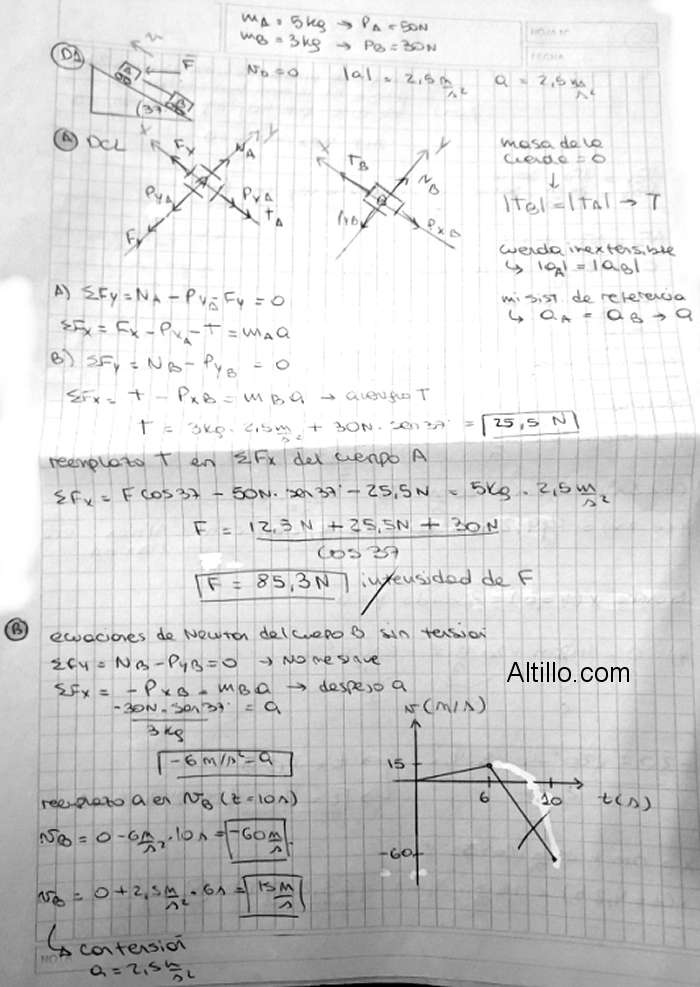 mA = 5kg → PA = 50N
mB = 3kg → PB = 30N
NOMBRE
FECHA
D1
v
A
F
B
37°
v0 = 0 |a| = 2,5 m/s² a = 2,5 m/s²
A DCL
x Fx NA y
PyA PxA
TA
Fy
x TB y
NB
B
PyB PxB
masa de la
cuerda = 0
↓
|TB| = |TA| → T
cuerda inextensible
↳ |aA| = |aB|
mi sist. de referencia
↳ aA = aB → a
A) ΣFy = NA - PyA - Fy = 0
ΣFx = Fx - PxA - T = mA a
B) ΣFy = NB - PyB = 0
ΣFx = T - PxB = mB a → averiguo T
T = 3kg · 2,5 m/s² + 30N · sen 37° = 25,5 N
reemplazo T en ΣFx del cuerpo A
ΣFx = F cos 37 - 50N · sen 37° - 25,5N = 5kg · 2,5 m/s²
F = 12,5 N + 25,5N + 30N
cos 37
F = 85,3N intensidad de F
B ecuaciones de Newton del cuerpo B sin tension
ΣFy = NB - PyB = 0 → No me sirve
Altillo.com
ΣFx = -PxB = mB a → despejo a
-30N · sen 37° = a
3 kg
-6 m/s² = a
v (m/s)
15
6 10 t(s)
-60
reemplazo a en vB (t = 10s)
vB = 0 - 6 m/s² · 10s = -60 m/s
vB = 0 + 2,5 m/s² · 6s = 15 m/s
↳ con tensión
a = 2,5 m/s²